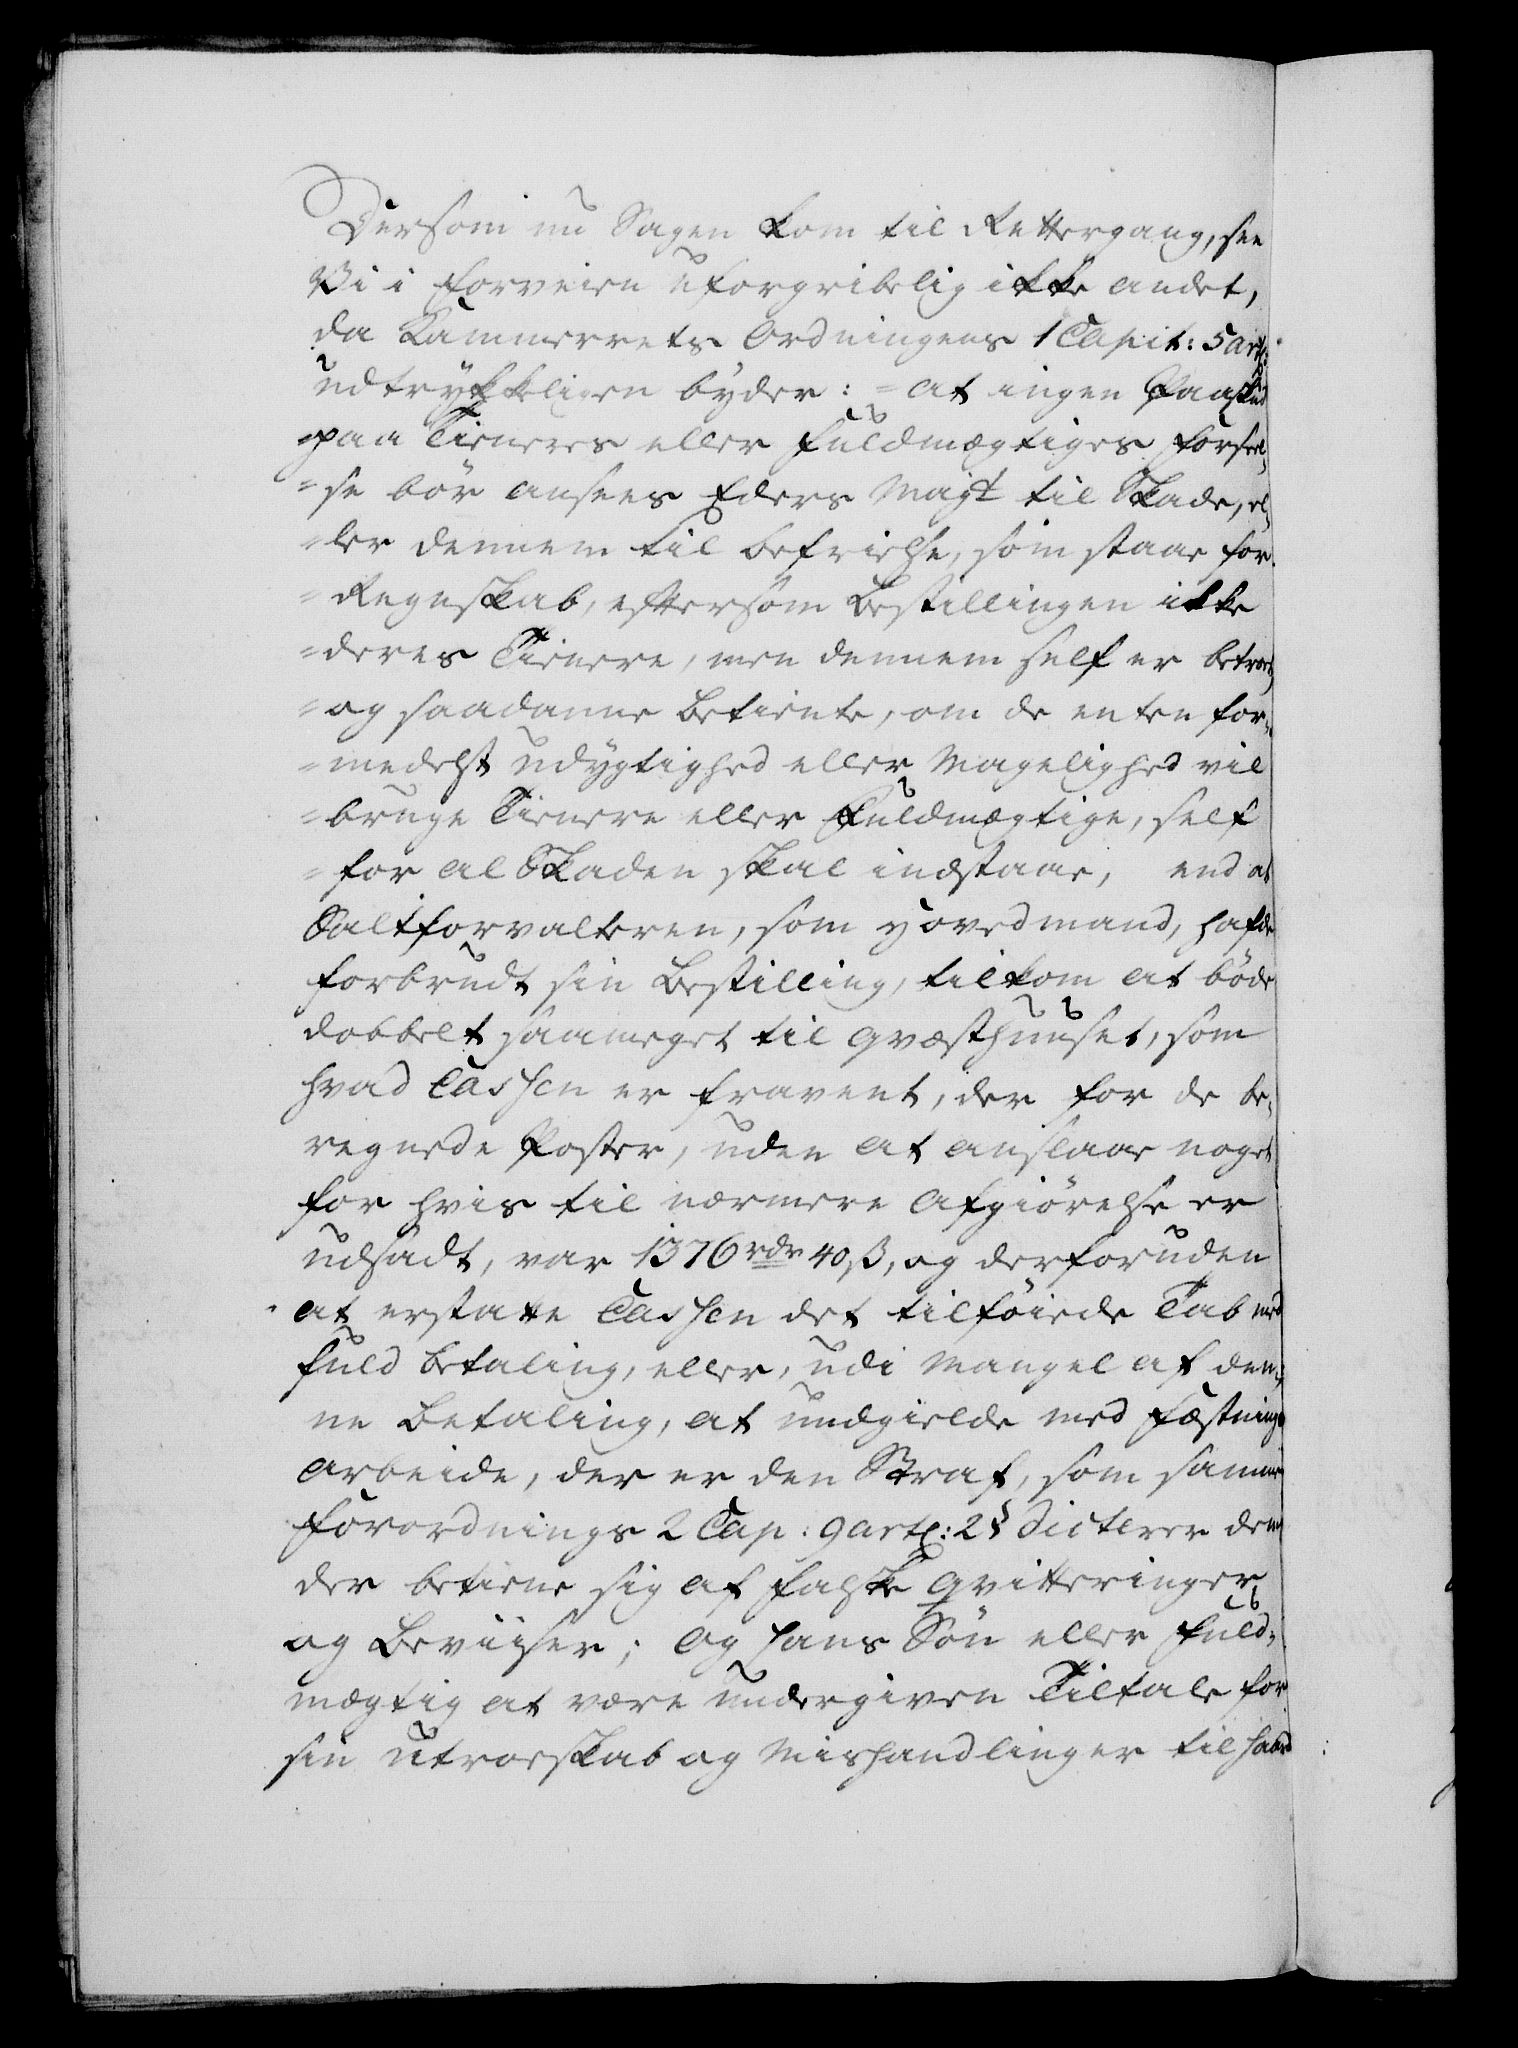 Dersom nu Sagen kom til Rettergang, see
Vi i forveien uforgribelig ikke andet,
da Kammerrets Ordningens 1 Capit: 5 artl:
udtrykkeligen byder: = at ingen Paaskud
=paa Tieneres eller Fuldmægtiges forseel,
=se bør ansees Eders Mayt til Skade, el,
=ler dennem til befrielse, som staar for
=Regnskab, eftersom Bestillingen ikke
=deres Tienere, men dennem self er betroet,
=og saadanne Betiente, om de enten for,
=medelst udygtighed eller Magelighed vil
=bruge Tienere eller Fuldmægtige, self
=for al Skaden skal indstaae, end at
Saltforvalteren, som Hovedmand, hafde
forbrudt sin Bestilling, tilkom at bøde
dobbelt saameget til Qvæsthuuset, som
hvad Cassen er fravent, der for de be,
regnede Poster, uden at anslaae noget
for hvis til nærmere Afgiørelse er
udsadt, var 1376 rdr 40 ß, og derforuden
at erstatte Cassen det tilføiede Tab med
fuld betaling, eller, udi Mangel af den,
ne Betaling, at undgielde med Fæstnings
Arbeide, der er den Straf, som samme
Forordnings 2 Cap: 9 artl: 2 § dicterer dem
der betiene sig af falske Qvitteringer
og Beviiser; Og hans Søn eller Fuld,
mægtig at være undergiven Tiltale for
sin utroeskab og Mishandlinger til habe